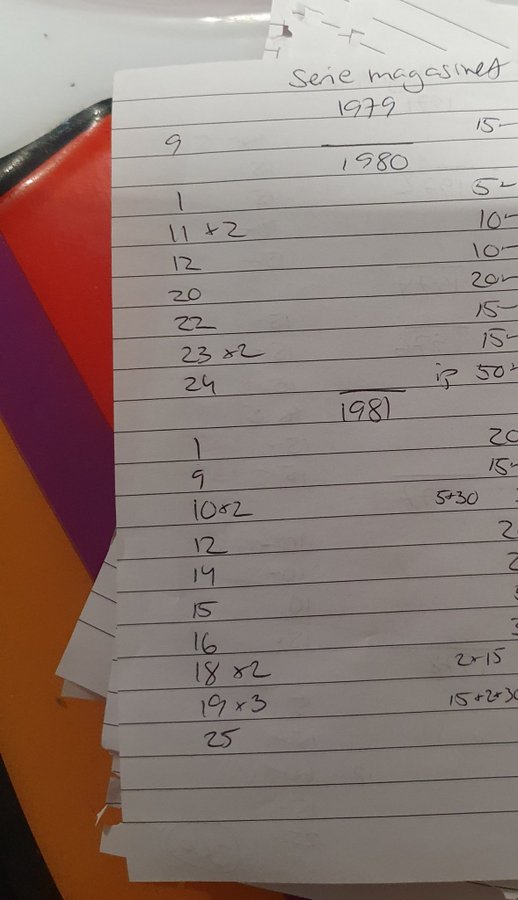 Serie magasinet
1979
9 15-
1980
1 5-
11 x2 10-
12 10-
20 20-
22 15-
23 x2 15-
24 ip 50-
1981
1 20
9 15-
10x2 5+30
12 2
14 2
15
16 3
18 x2 2x15
19 x3 15+2x30
25